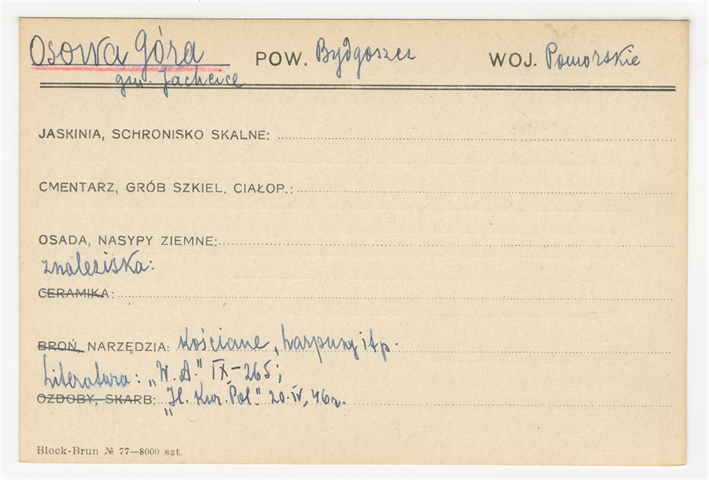 Osowa Góra POW. Bydgoszcz WOJ. Pomorskie
gm. Jachcice
JASKINIA, SCHRONISKO SKALNE:
CMENTARZ, GRÓB SZKIEL. CIAŁOP.:
OSADA, NASYPY ZIEMNE:
znaleziska:
CERAMIKA:
BROŃ, NARZĘDZIA: Kościane, harpuny itp.
Literatura: „W. A." IX-265;
OZDOBY, SKARB: „Il. Kur. Pol." 20.IV.46r.
Block-Brun № 77—8000 szt.